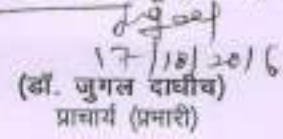 17/10/2016
(डॉ. जुगल दाधीच)
प्राचार्य (प्रभारी)